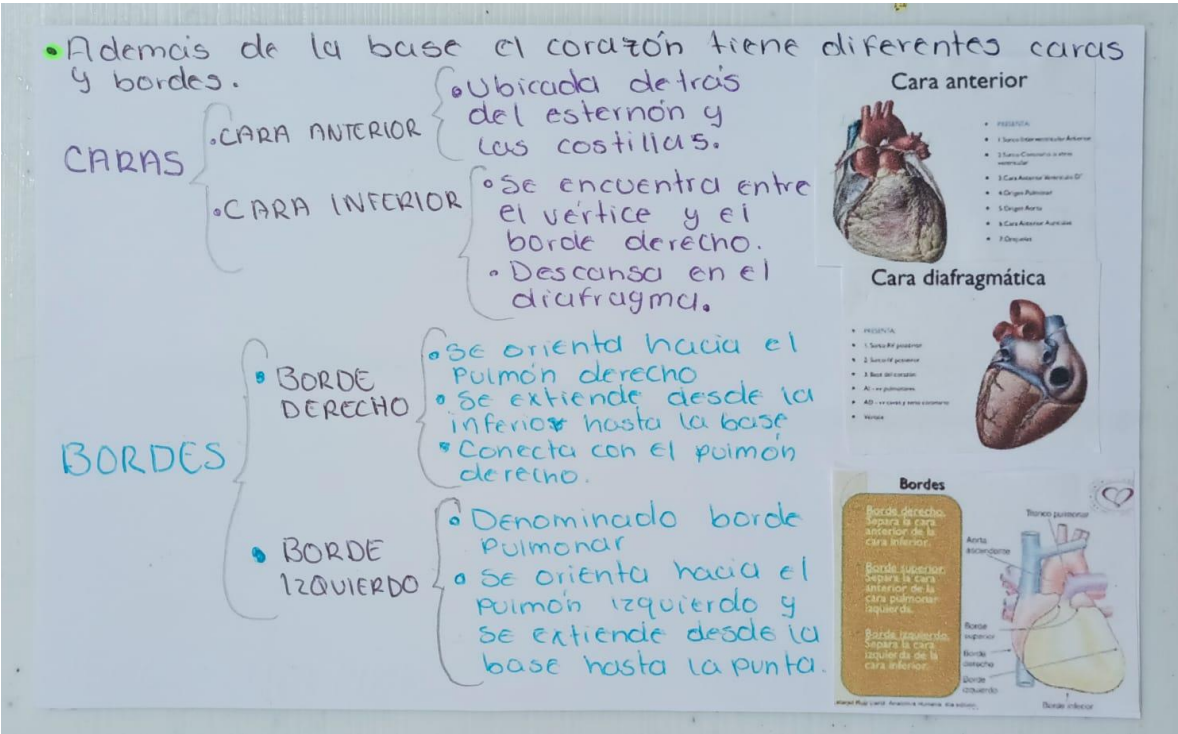 •Además de la base el corazón tiene diferentes caras
y bordes.
CARAS
•CARA ANTERIOR
•Ubicada detrás
del esternón y
las costillas.
•CARA INFERIOR
•Se encuentra entre
el vértice y el
borde derecho.
•Descansa en el
diafragma.
BORDES
•BORDE
DERECHO
•Se orienta hacia el
Pulmón derecho
•Se extiende desde la
inferior hasta la base
•Conecta con el pulmón
derecho.
•BORDE
IZQUIERDO
•Denominado borde
Pulmonar
•Se orienta hacia el
pulmón izquierdo y
se extiende desde la
base hasta la punta.
Cara anterior
• PRESENTA:
• 1 Surco Interventricular Anterior
• 4 Origen Pulmonar
• 5 Origen Aorta
• 6 Cara Anterior Aurículas
• 7 Orejuelas
Cara diafragmática
• PRESENTA:
• 1. Surco AV posterior
• 2. Surco IV posterior
• 3. Base del corazón
Bordes
Borde derecho.
Separa la cara
anterior de la
cara inferior.
Borde superior.
Separa la cara
anterior de la
cara pulmonar
izquierda.
Borde izquierdo.
Separa la cara
izquierda de la
cara inferior.
Tronco pulmonar
Aorta
ascendente
Borde
superior
Borde
derecho
Borde
izquierdo
Borde inferior